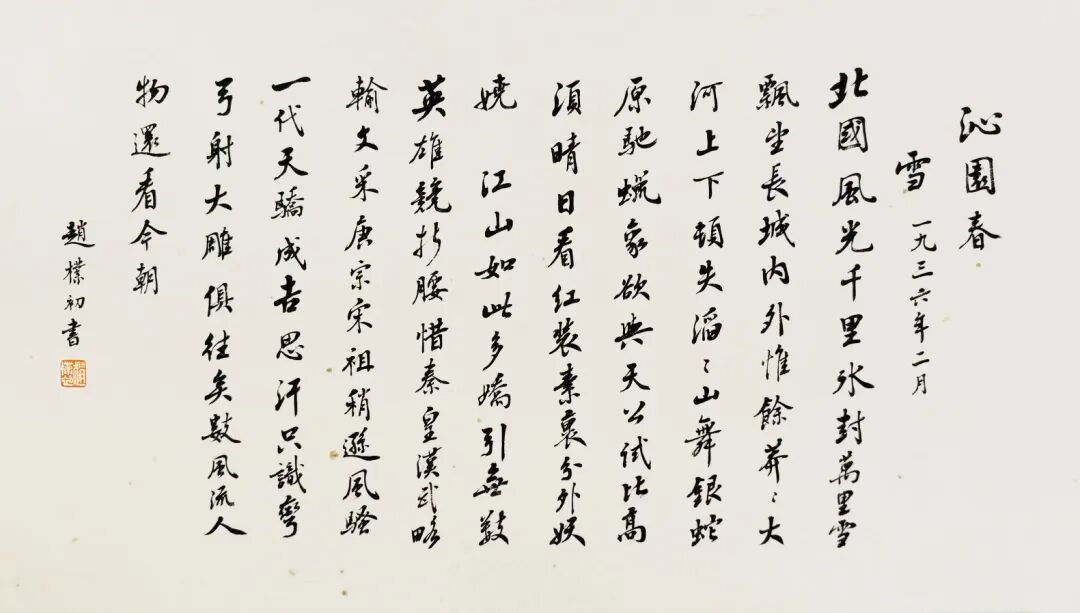 沁園春
雪 一九三六年二月
北國風光千里冰封萬里雪
飄望長城內外惟餘莽〻大
河上下頓失滔〻山舞銀蛇
原馳蠟象欲與天公試比高
須晴日看紅裝素裹分外妖
嬈 江山如此多嬌引無數
英雄競折腰惜秦皇漢武略
輸文采唐宗宋祖稍遜風騷
一代天驕成吉思汗只識彎
弓射大雕俱往矣數風流人
物還看今朝
趙樸初書